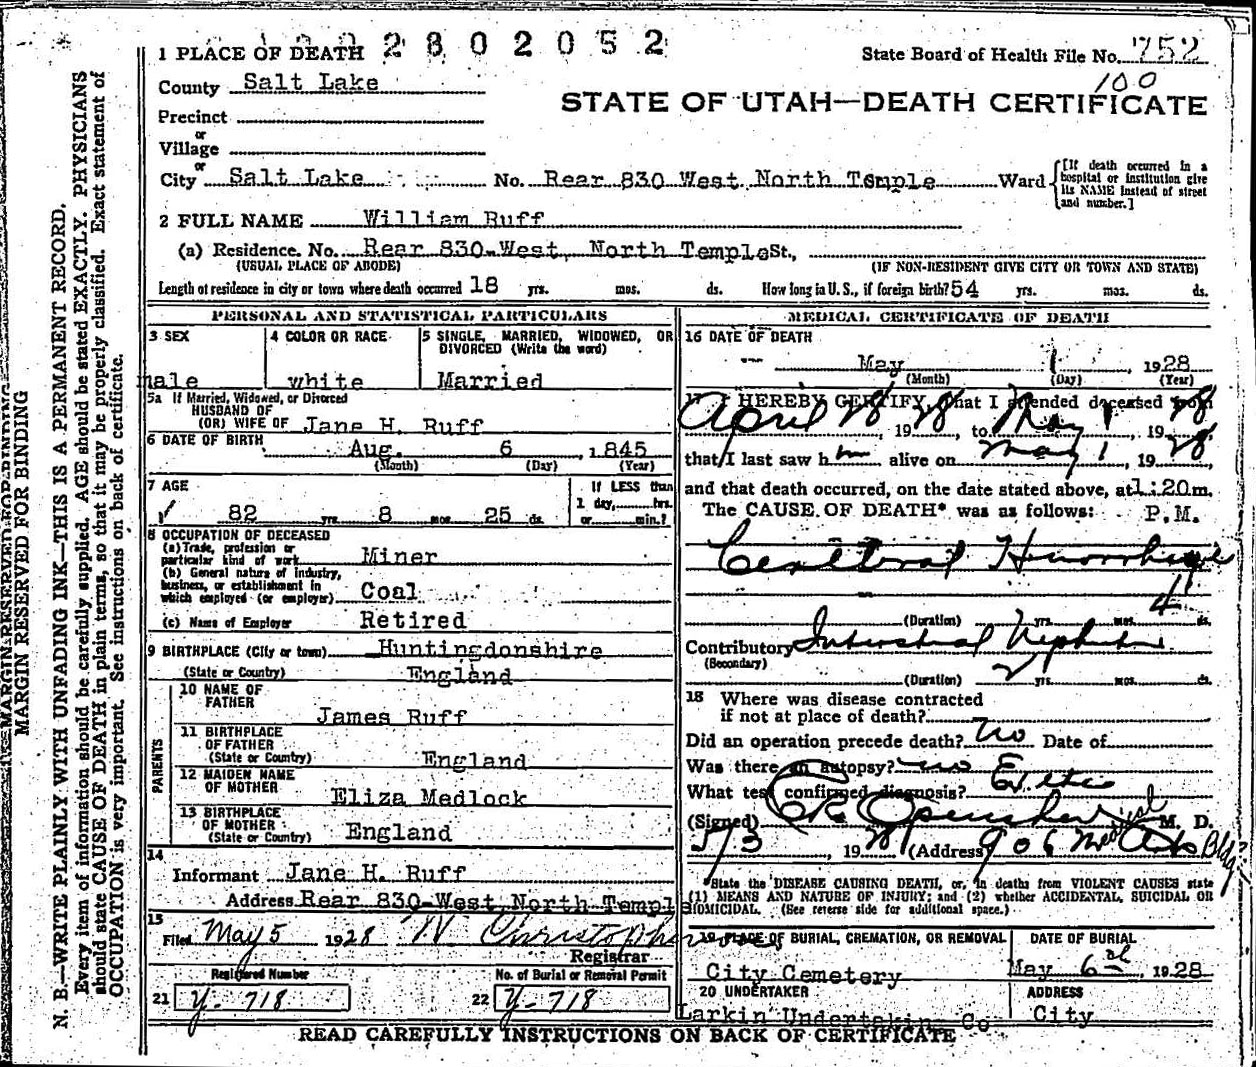 1 PLACE OF DEATH 2802052 State Board of Health File No. 752
100
County Salt Lake
STATE OF UTAH—DEATH CERTIFICATE
Precinct
or
Village
or
City Salt Lake No. Rear 830 West North Temple Ward [If death occurred in a hospital or institution give its NAME instead of street and number.]
2 FULL NAME William Ruff
(a) Residence. No. Rear 830-West, North Temple St.,
(USUAL PLACE OF ABODE) (IF NON-RESIDENT GIVE CITY OR TOWN AND STATE)
Length of residence in city or town where death occurred 18 yrs. mos. ds. How long in U. S., if foreign birth? 54 yrs. mos. ds.
PERSONAL AND STATISTICAL PARTICULARS
3 SEX
male
4 COLOR OR RACE
white
5 SINGLE, MARRIED, WIDOWED, OR DIVORCED (Write the word)
Married
5a If Married, Widowed, or Divorced
HUSBAND OF
(OR) WIFE OF Jane H. Ruff
6 DATE OF BIRTH
Aug. 6, 1845
(Month) (Day) (Year)
7 AGE
82 yrs. 8 mos. 25 ds.
If LESS than
1 day, hrs.
or min.?
8 OCCUPATION OF DECEASED
(a) Trade, profession or
particular kind of work Miner
(b) General nature of industry,
business, or establishment in
which employed (or employer) Coal
(c) Name of Employer Retired
9 BIRTHPLACE (City or town) Huntingdonshire
(State or Country) England
PARENTS
10 NAME OF
FATHER
James Ruff
11 BIRTHPLACE
OF FATHER
(State or Country) England
12 MAIDEN NAME
OF MOTHER
Eliza Medlock
13 BIRTHPLACE
OF MOTHER
(State or Country) England
14
Informant Jane H. Ruff
Address Rear 830-West North Temple
15
Filed May 5 1928
Registrar
Registered Number
21 Y-718
No. of Burial or Removal Permit
22 Y-718
MEDICAL CERTIFICATE OF DEATH
16 DATE OF DEATH
May 1 1928
(Month) (Day) (Year)
17 I HEREBY CERTIFY, that I attended deceased from
April 28, 1928, to May 1, 1928
that I last saw him alive on May 1, 1928
and that death occurred, on the date stated above, at 1:20 m.
The CAUSE OF DEATH* was as follows: P.M.
Cerebral Hemorrhage
4
(Duration) yrs. mos. ds.
Contributory Interstitial Nephritis
(Secondary)
(Duration) 2 yrs. mos. ds.
18 Where was disease contracted
if not at place of death?
Did an operation precede death? no Date of
Was there an autopsy? no
What test confirmed diagnosis?
(Signed) M. D.
5/3, 1928 (Address) 906 Medical Arts Bldg
*State the DISEASE CAUSING DEATH, or, in deaths from VIOLENT CAUSES state
(1) MEANS AND NATURE OF INJURY; and (2) whether ACCIDENTAL, SUICIDAL OR
HOMICIDAL. (See reverse side for additional space.)
19 PLACE OF BURIAL, CREMATION, OR REMOVAL
City Cemetery
DATE OF BURIAL
May 6th, 1928
20 UNDERTAKER
Larkin Undertaking Co
ADDRESS
City
READ CAREFULLY INSTRUCTIONS ON BACK OF CERTIFICATE
MARGIN RESERVED FOR BINDING
MARGIN RESERVED FOR BINDING
N. B.—WRITE PLAINLY WITH UNFADING INK—THIS IS A PERMANENT RECORD.
Every item of information should be carefully supplied. AGE should be stated EXACTLY. PHYSICIANS
should state CAUSE OF DEATH in plain terms, so that it may be properly classified. Exact statement of
OCCUPATION is very important. See instructions on back of certificate.